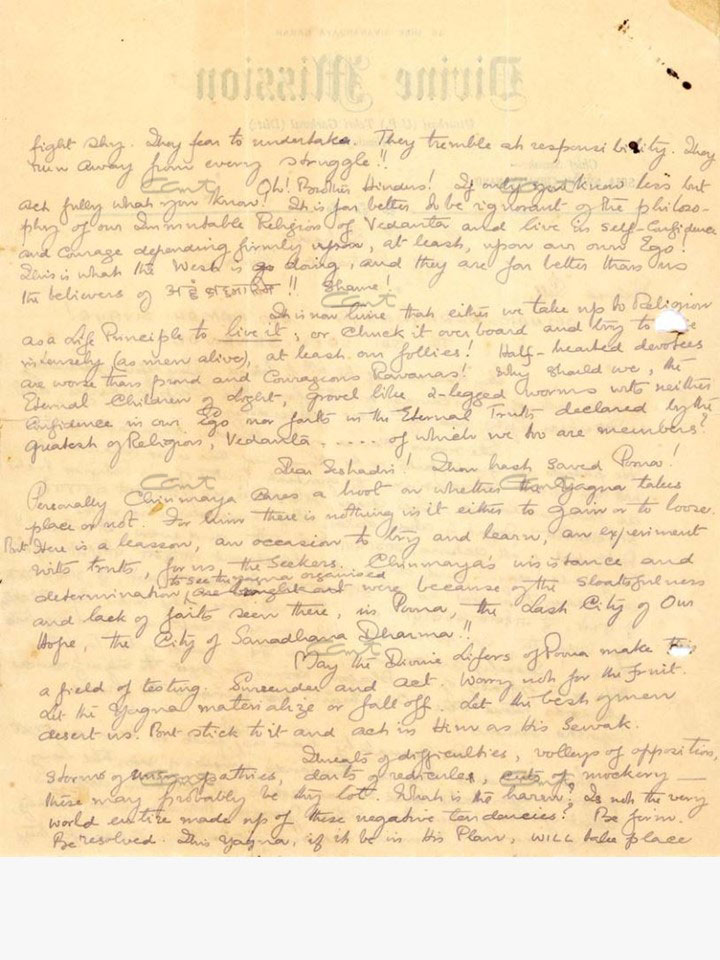 Divine Mission
fight shy. They fear to undertake. They tremble at responsibility. They
run away from every struggle!!
Oh! Brother Hindus! If only you know less but
act fully what you know! It is far better to be ignorant of the philoso-
phy of our Immutable Religion of Vedanta and live in Self-Confidence
and Courage depending firmly upon, at least, upon our own Ego!
This is what the West is doing, and they are far better than us
the believers of !! Shame!
It is now time that either we take up to Religion
as a Life Principle to live it; or chuck it over board and try to
intensely (as men alive), at least our follies! Half-hearted devotees
are worse than proud and Courageous Ravanas! Why should we, the
Eternal Children of Light, grovel like 2-legged worms with neither
Confidence in our Ego nor faith in the Eternal Truth declared by the
greatest of Religion, Vedanta ..... of which we too are members?
Dear Seshadri! Thou hast saved Poona!
Personally Chinmaya cares a hoot on whether the Yagna takes
place or not. For him there is nothing in it either to gain or to loose.
But Here is a leasson, an occasion to try and learn, an experiment
with truth, for us, the Seekers. Chinmaya's insistance and
to see the yagna organised
determination, were because of the slothfulness
and lack of faith seen there, in Poona, the Last City of Our
Hope, the City of Sanadhana Dharma!!
May the Divine lifers of Poona make
a field of testing. Surrender and act. Worry not for the fruit.
Let the Yagna materialize or fall off. Let the best of men
desert us. But stick to it and act in Him as His Sewak.
Threats of difficulties, volleys of opposition,
storms of pathies, darts of rediculus, cuts of mockery —
these may probably be thy lot. What is the harm? Is not the very
world entire made up of these negative tendencies? Be firm.
Be resolved. This Yagna, if it be in His Plan, WILL take place